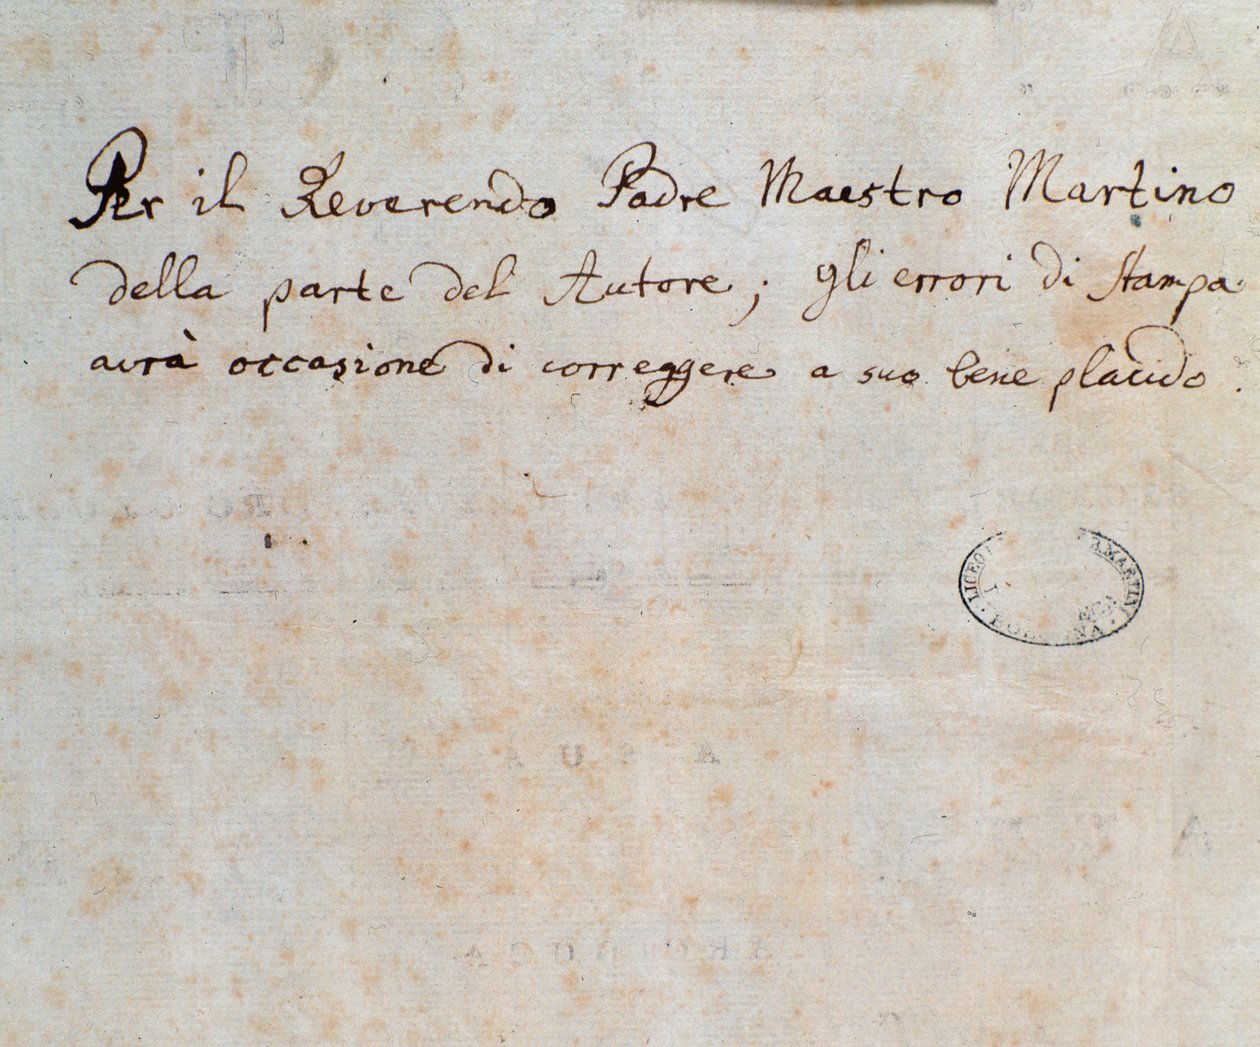 Per il Reverendo Padre Maestro Martino
della parte del Autore; gli errori di stampa
avrà occasione di correggere a suo bene placido.
LICEO
MARTINI
BOLOGNA